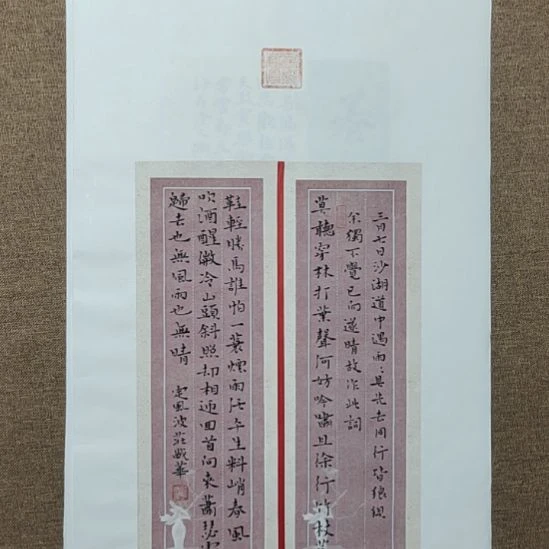 三月七日沙湖道中遇雨〻具先去同行皆狼狽
余獨不覺已而遂晴故作此詞
莫聽穿林打葉聲何妨吟嘯且徐行竹杖
鞋輕勝馬誰怕一蓑煙雨任平生料峭春風
吹酒醒微冷山頭斜照却相迎回首向來蕭瑟
歸去也無風雨也無晴
定風波莊